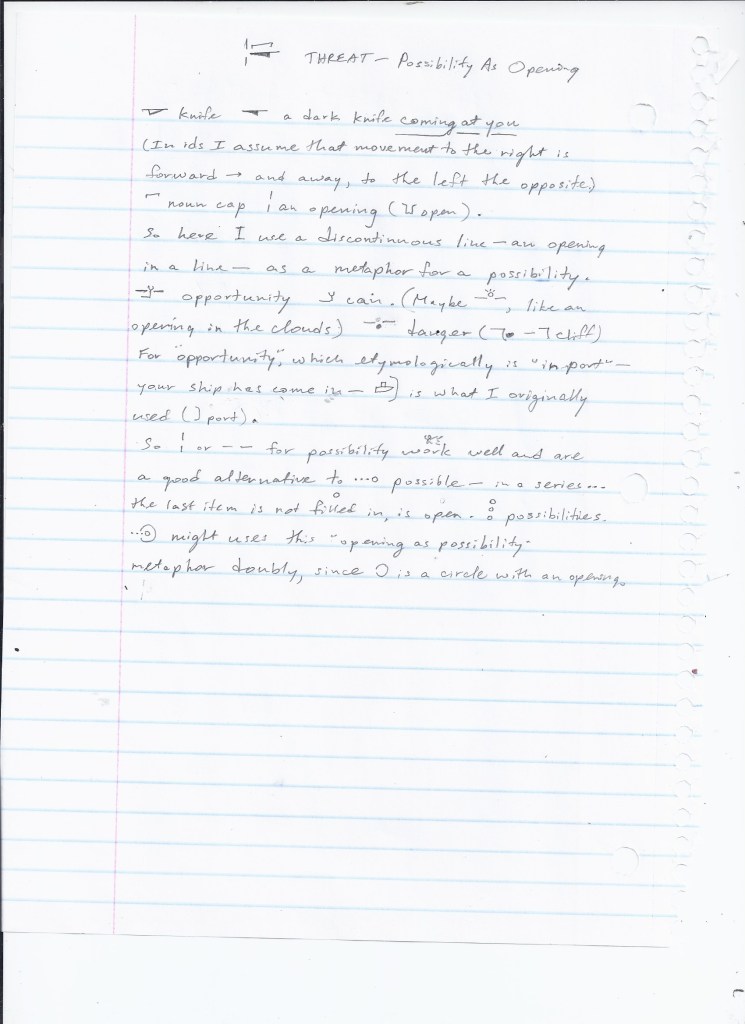 THREAT — Possibility As Opening
knife a dark knife coming at you
(In ids I assume that movement to the right is
forward → and away, to the left the opposite)
noun cap ¦ an opening ( open).
So here I use a discontinuous line — an opening
in a line — as a metaphor for a possibility.
opportunity can. (Maybe , like an
opening in the clouds) danger ( - ㄱ cliff)
For "opportunity", which etymologically is "in port" —
your ship has come in — is what I originally
used (] port).
So ¦ or – – for possibility work well and are
a good alternative to ...o possible — in a series...
the last item is not filled in, is open. possibilities.
might uses this "opening as possibility"
metaphor doubly, since O is a circle with an opening.